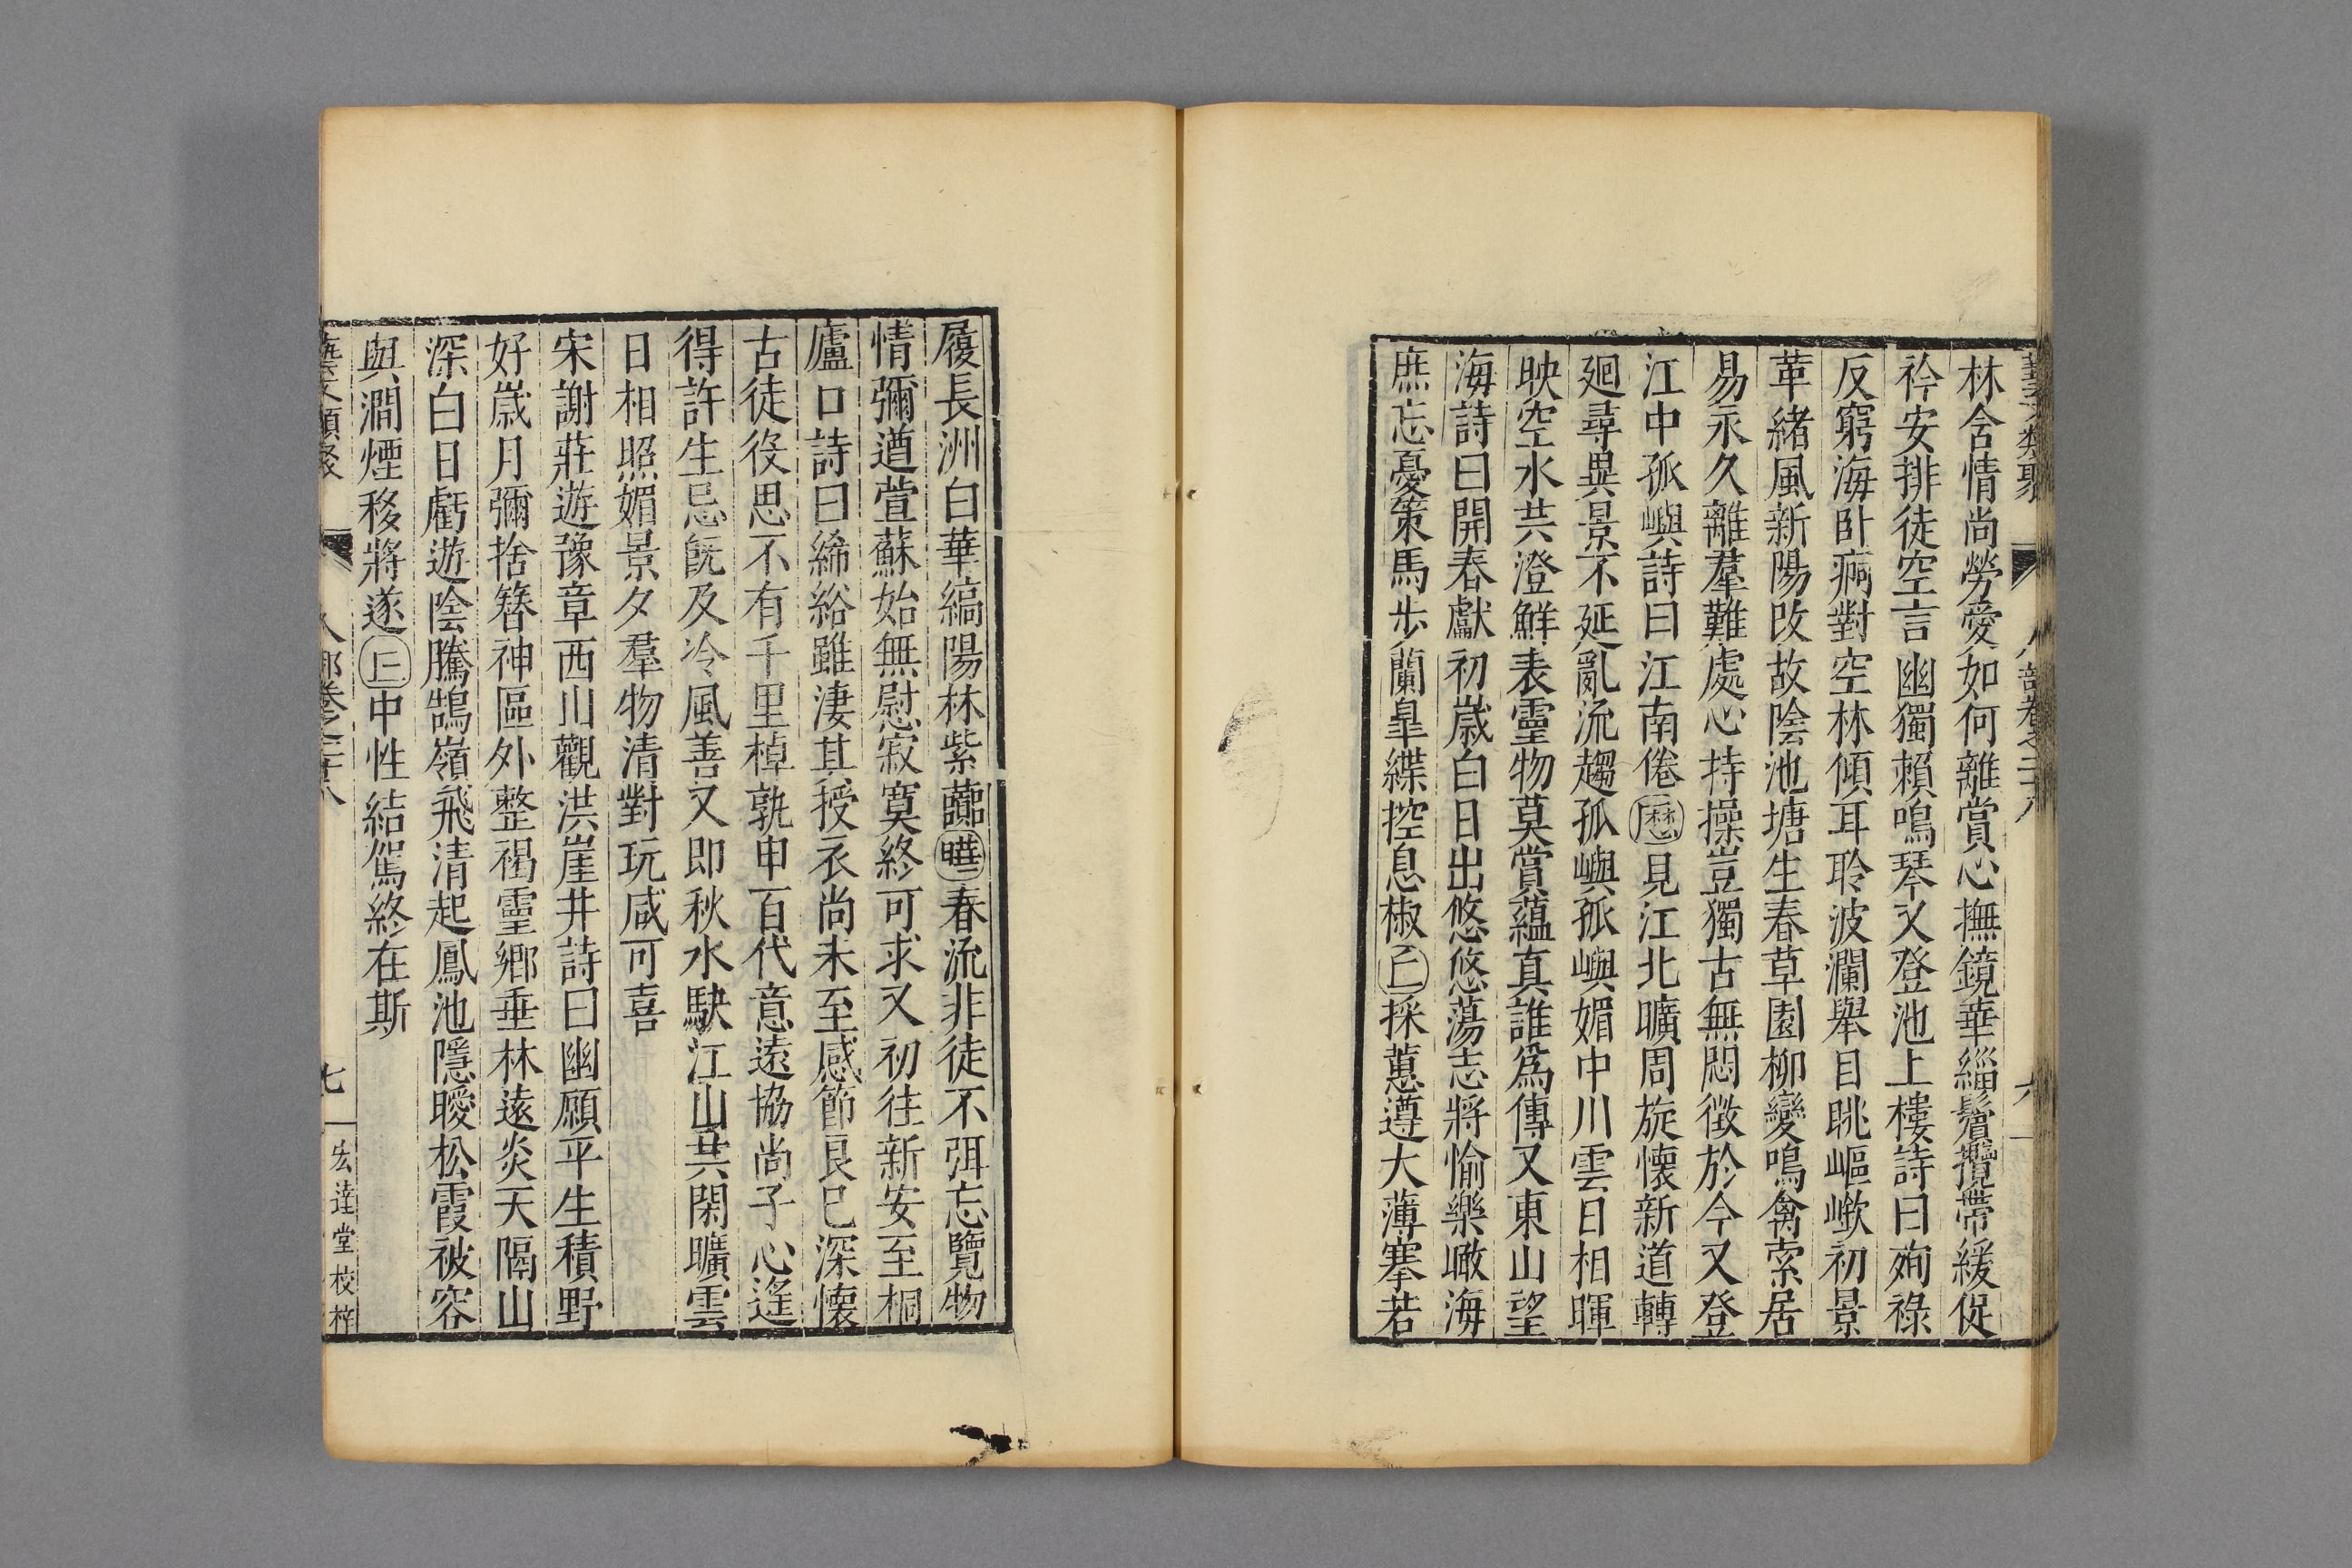 林含情尚勞愛如何離賞心撫鏡華緇鬢攬帶緩促
衿安排徒空言幽獨賴鳴琴又登池上樓詩曰殉祿
反窮海卧痾對空林傾耳聆波瀾舉目眺嶇嶔初景
革緒風新陽改故陰池塘生春草園柳變鳴禽索居
易永久離羣難處心持操豈獨古無悶徵於今又登
江中孤嶼詩曰江南倦歷見江北曠周旋懷新道轉
廻尋異景不延亂流趨孤嶼孤嶼媚中川雲日相暉
映空水共澄鮮表靈物莫賞蘊真誰為傳又東山望
海詩曰開春獻初歲白日出悠悠蕩志將愉樂瞰海
庶忘憂策馬步蘭皐緤控息椒丘採蕙遵大薄搴若
藝文類聚 八部卷之二十八 六
履長洲白華縞陽林紫虈曄春流非徒不弭忘覽物
情彌遒萱蘇始無慰寂寞終可求又初往新安至桐
廬口詩曰絺綌雖淒其授衣尚未至感節良已深懷
古徒役思不有千里棹孰申百代意遠協尚子心遙
得許生忌旣及冷風善又即秋水駃江山共閑曠雲
日相照媚景夕羣物清對玩咸可喜
宋謝莊遊豫章西川觀洪崖井詩曰幽願平生積野
好歲月彌捨簪神區外整褐靈鄉垂林遠炎天隔山
深白日虧遊陰騰鵠嶺飛清起鳳池隱曖松霞被容
與澗煙移將遂丘中性結駕終在斯
藝文類聚 人部卷之二十八 七 宏達堂校梓